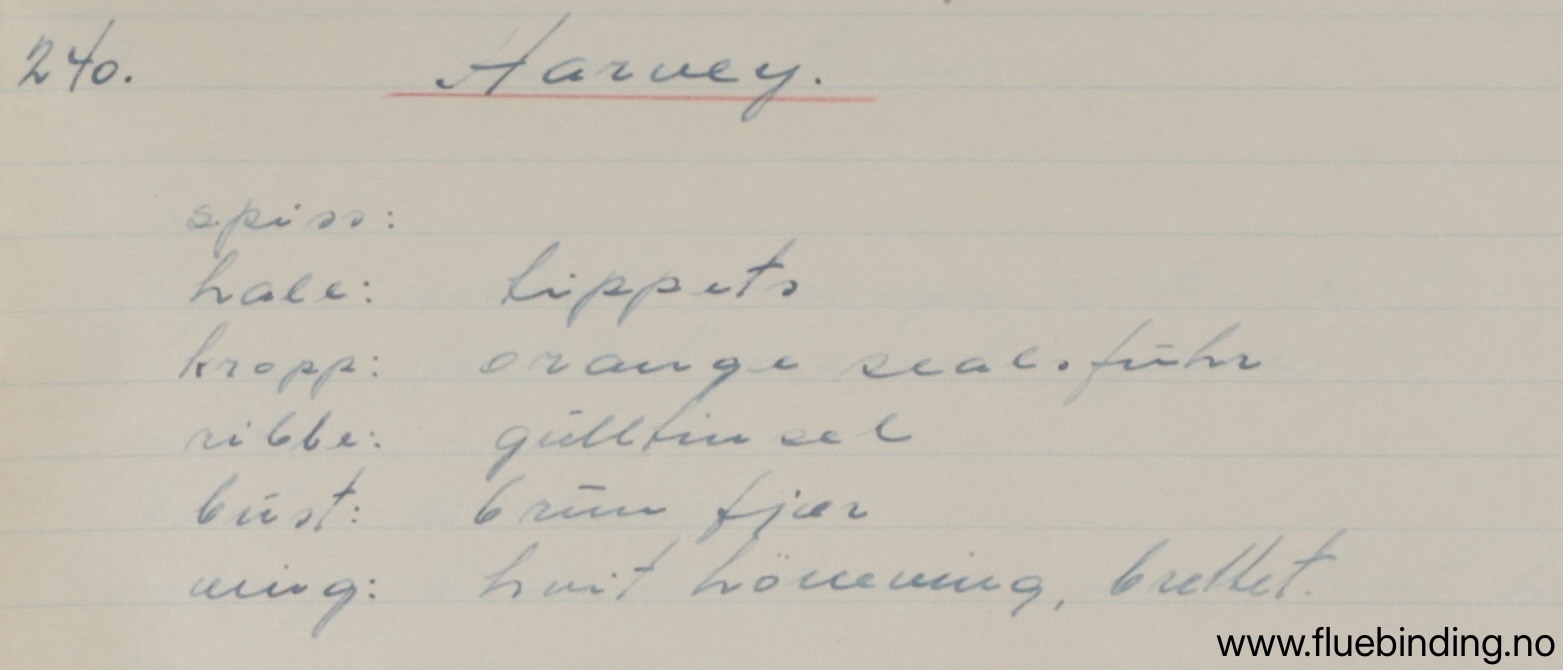 240. Harvey.
spiss:
hale: tippets
kropp: orange seal.fuhr
ribbe: gulltinsel
bust: brun fjær
ving: hvit hönseving, brettet.
www.fluebinding.no